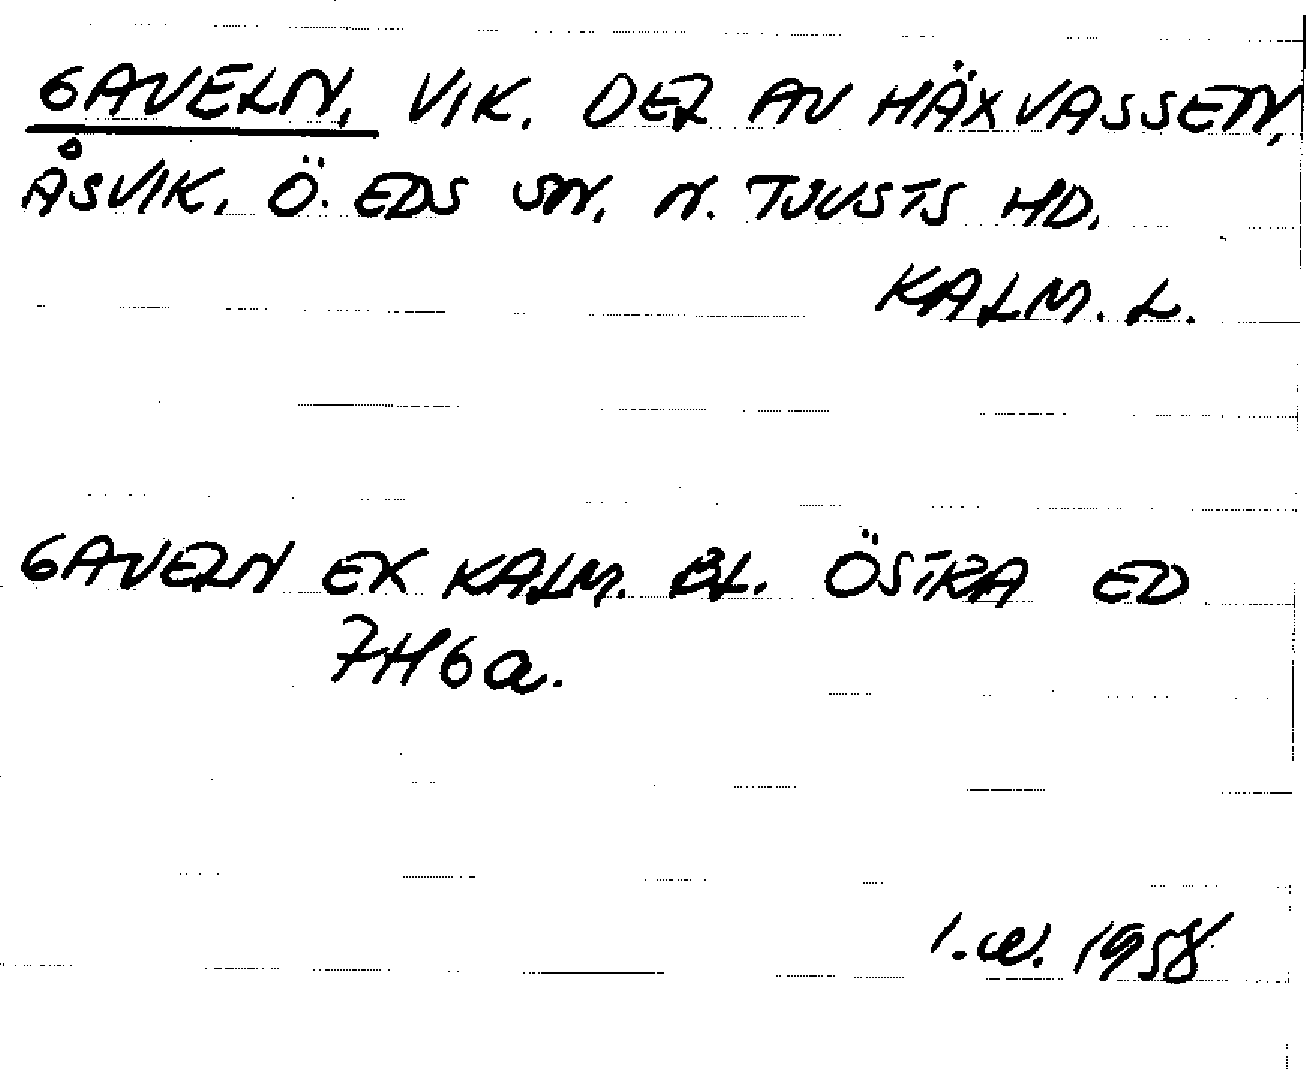 GAVELN, VIK. DEL AV HÄXVASSEN,
ÅSVIK. Ö. EDS SN, N. TJUSTS HD,
KALM. L.
GAVELN EK KALM. BL. ÖSTRA ED
7H6a.
I.W. 1958